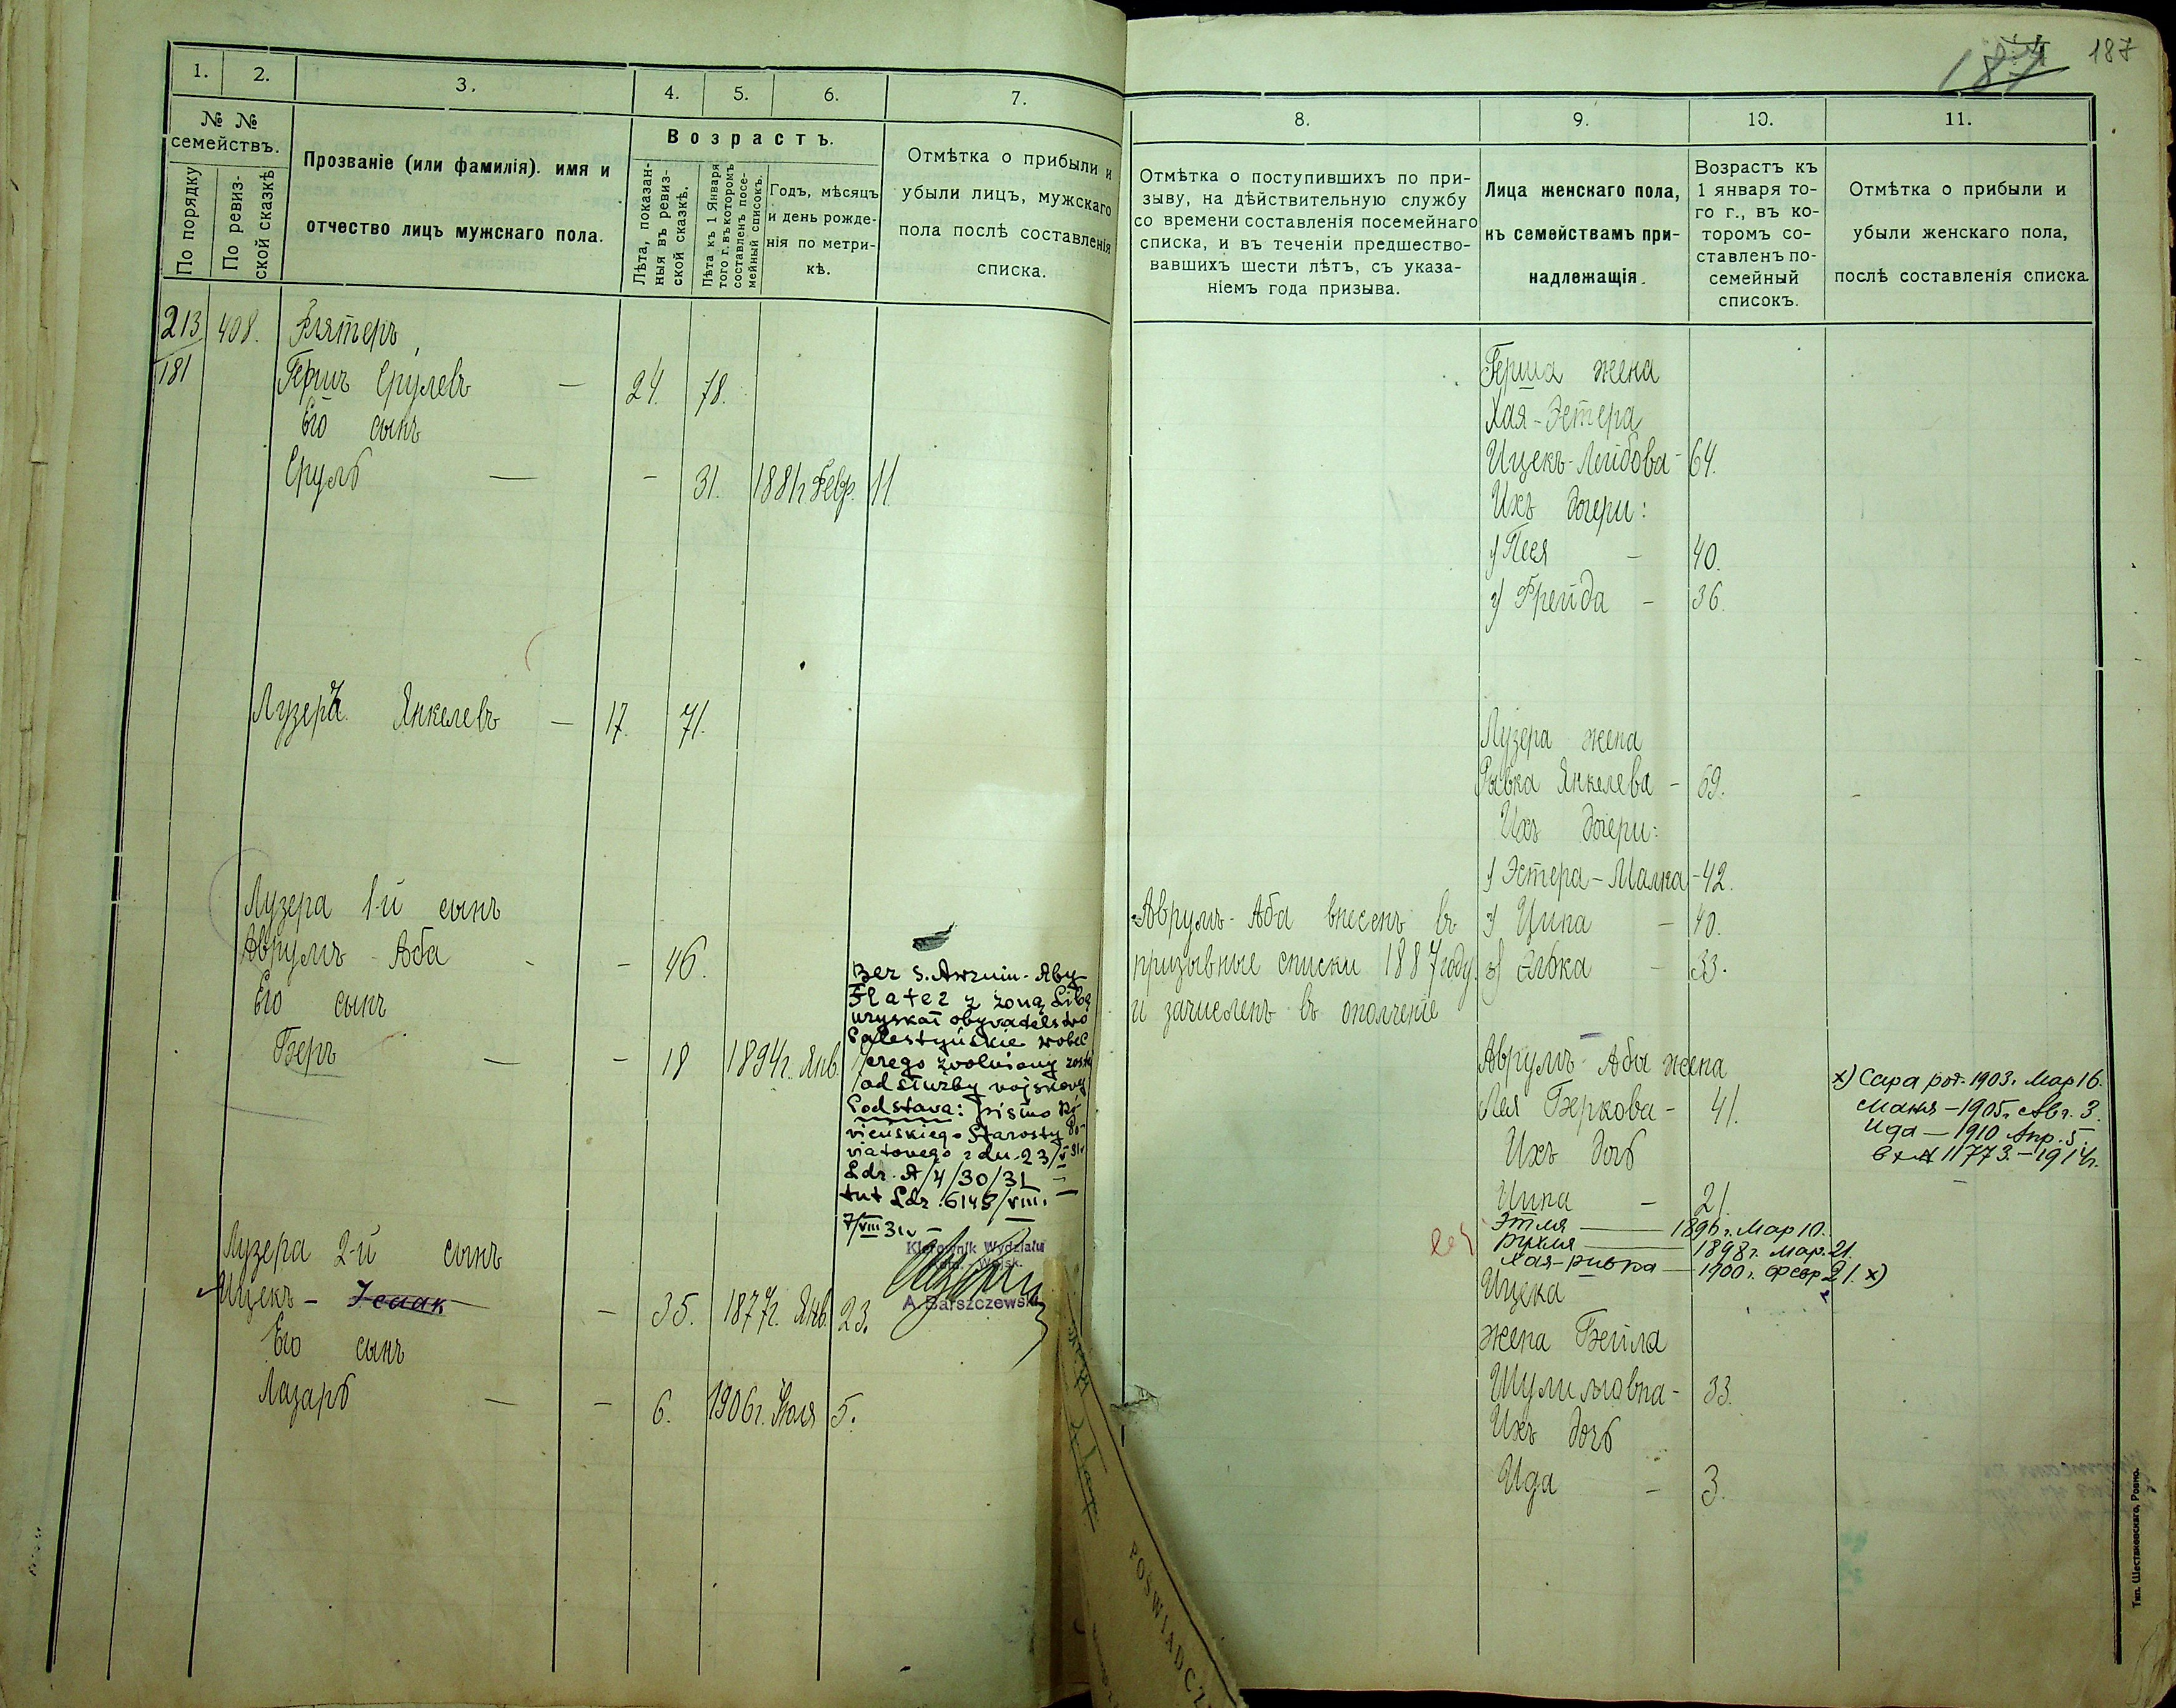 1.
2.
3.
4.
5.
6.
7.
№ №
семействъ.
По порядку
По ревиз-
ской сказкѣ
Прозваніе (или фамилія). имя и
отчество лицъ мужскаго пола.
Возрастъ.
Лѣта, показан-
ныя въ ревиз-
ской сказкѣ.
Лѣта къ 1 Января
того г. въ которомъ
составленъ посе-
мейный списокъ.
Годъ, мѣсяцъ
и день рожде-
нія по метри-
кѣ.
Отмѣтка о прибыли и
убыли лицъ, мужскаго
пола послѣ составленія
списка.
213
181
408.
Флятеръ
Гершъ Срулевъ — 24. 78.
Его сынъ
Сруль — - 31. 1881г. Февр. 11.
Лузеръ Янкелевъ — 17. 71.
Лузера 1-й сынъ
Аврумъ - Аба - - 46.
Его сынъ
Беръ — - 18 1894г. Янв.
Ber s. Awrum-Aby
Flater z żoną Libą
uzyskał obywatelstwo
Palestyńskie wobec
czego zwolniony
od służby wojskowej
Podstawa: pismo Ró-
wieńskiego Starosty Po-
wiatowego z dn. 23/V 31
Ldz. A/4/30/31 —
tut Ldz. 6143/VIII. —
7/VIII 31.
Kierownik Wydziału
Wojsk.
A. Barszczewski
Лузера 2-й сынъ
Ицекъ - Исаак — 35. 1877г. Янв. 23.
Его сынъ
Лазарь — - 6. 1906г. Іюля 5.
187
187
8.
9.
10.
11.
Отмѣтка о поступившихъ по при-
зыву, на дѣйствительную службу
со времени составленія посемейнаго
списка, и въ теченіи предшество-
вавшихъ шести лѣтъ, съ указа-
ніемъ года призыва.
Лица женскаго пола,
къ семействамъ при-
надлежащія.
Возрастъ къ
1 января то-
го г., въ ко-
торомъ со-
ставленъ по-
семейный
списокъ.
Отмѣтка о прибыли и
убыли женскаго пола,
послѣ составленія списка
Герша жена
Хая-Эстера
Ицекъ-Лейбова - 64.
Ихъ дочери:
1/ Песя - 40.
2/ Фрейда - 36.
Лузера жена
Рывка Янкелева - 69.
Ихъ дочери:
1/ Эстера-Малка - 42.
2/ Ципа - 40.
3/ Элька - 33.
Аврумъ-Аба внесенъ въ
призывные списки 1887 году
и зачисленъ въ ополченіе
Аврумъ-Абы жена
Лея Беркова - 41.
Ихъ дочь
Ципа - 21.
Этля — 1896г. Мар 10.
Рухля — 1898г. Мар. 21.
Хая-Ривка — 1900г. Февр 21. x)
x) Сара род. 1903г. Мар 16.
Маня — 1905г. Авг. 3.
Ида — 1910 Апр. 5.
вх № 11773. — 1914г.
Ицека
жена Бейла
Шулимовна - 33.
Ихъ дочь
Ида - 3.
POSWIADCZ
Тип. Шестаковскаго, Ровно.